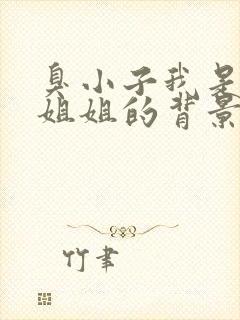 臭小子我是
姐姐的背景
竹聿